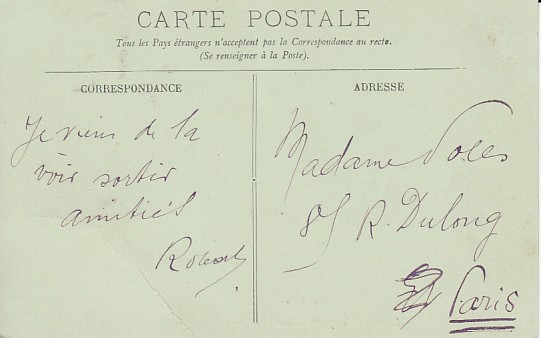 CARTE POSTALE
Tous les Pays étrangers n'acceptent pas la Correspondance au recto.
(Se renseigner à la Poste).
CORRESPONDANCE
Je viens de la
voir sortir
amitiés
Robert
ADRESSE
Madame
R. Dulong
Paris